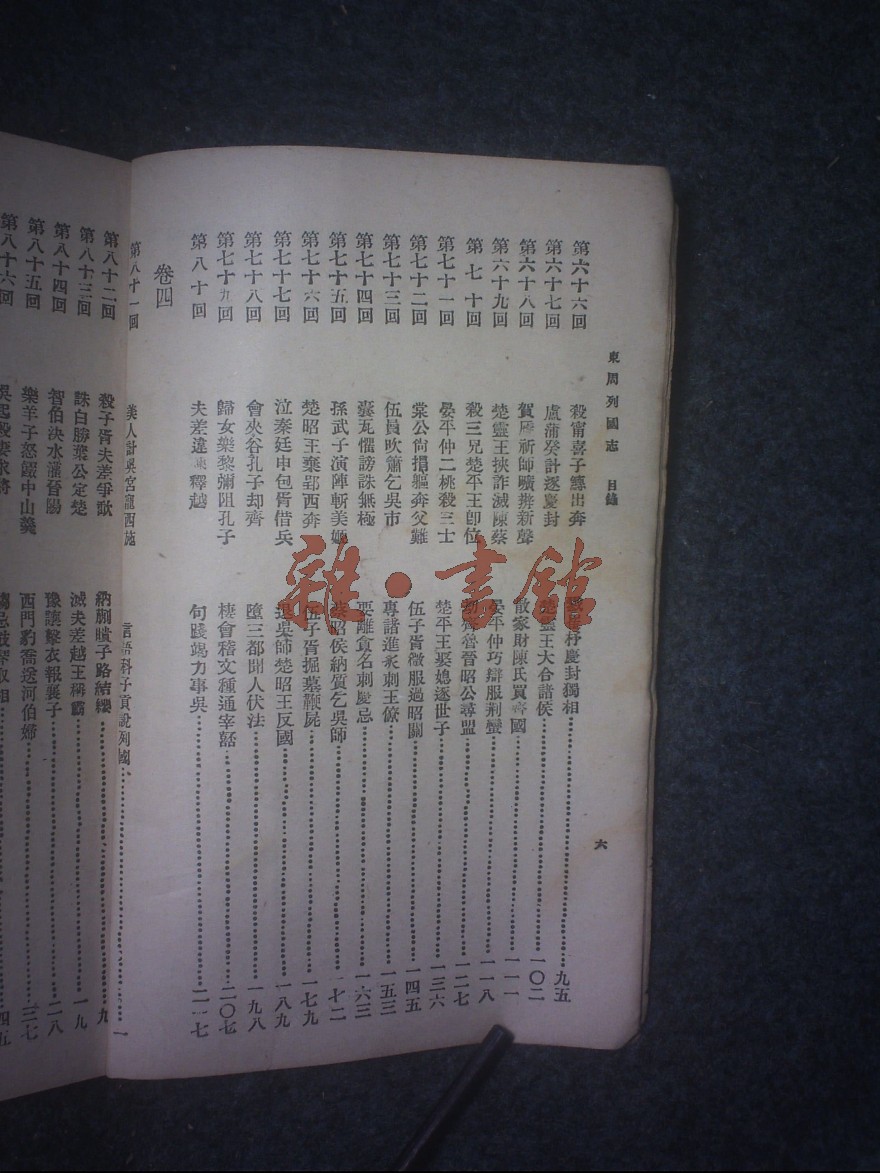 東周列國志 目錄
六
第六十六回 殺甯喜子鱄出奔 崔杼慶封獨相 九五
第六十七回 盧蒲癸計逐慶封 楚靈王大合諸侯 一〇二
第六十八回 賀虒祁師曠辨新聲 散家財陳氏買齊國 一一一
第六十九回 楚靈王挾詐滅陳蔡 晏平仲巧辯服荆蠻 一一八
第七十回 殺三兄楚平王卽位 齊魯晉昭公尋盟 一二七
第七十一回 晏平仲二桃殺三士 楚平王娶媳逐世子 一三六
第七十二回 棠公尙捐軀奔父難 伍子胥微服過昭關 一四五
第七十三回 伍員吹簫乞吳市 專諸進炙刺王僚 一五三
第七十四回 囊瓦懼謗誅無極 要離貪名刺慶忌 一六三
第七十五回 孫武子演陣斬美姬 蔡昭侯納質乞吳師 一七二
第七十六回 楚昭王棄郢西奔 伍子胥掘墓鞭屍 一七九
第七十七回 泣秦廷申包胥借兵 退吳師楚昭王反國 一八九
第七十八回 會夾谷孔子却齊 墮三都聞人伏法 一九八
第七十九回 歸女樂黎彌阻孔子 棲會稽文種通宰嚭 二〇七
第八十回 夫差違諫釋越 句踐竭力事吳 二一七
卷四
第八十一回 美人計吳宮寵西施 言語科子貢說列國 一
第八十二回 殺子胥夫差爭歃 納蒯聵子路結纓 九
第八十三回 誅白勝葉公定楚 滅夫差越王稱霸 一九
第八十四回 智伯決水灌晉陽 豫讓擊衣報襄子 二八
第八十五回 樂羊子怒餟中山羹 西門豹喬送河伯婦 三七
第八十六回 吳起殺妻求將 騶忌鼓琴取相 四五
雜·書館